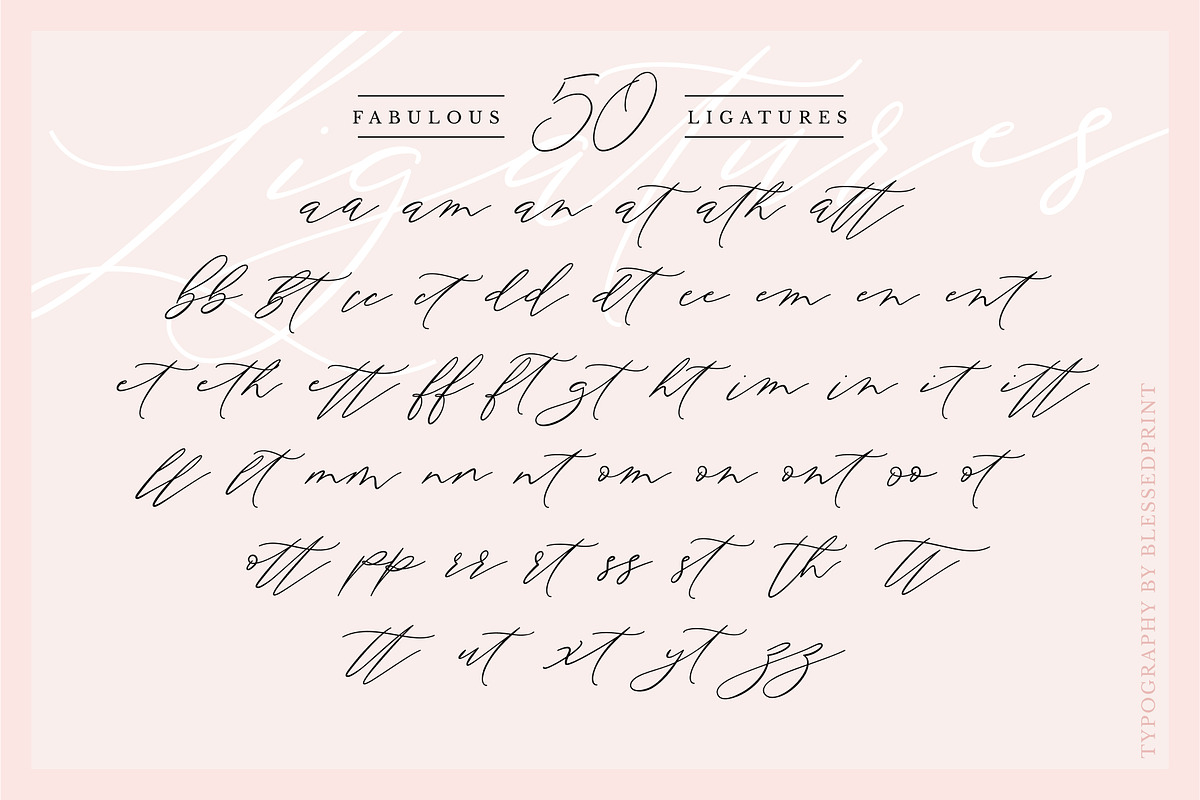 Ligatures
FABULOUS 50 LIGATURES
aa am an at ath att
bb bt cc ct dd dt ee em en ent
et eth ett ff ft gt ht im in it itt
ll lt mm nn nt om on ont oo ot
ott pp rr rt ss st th tt
tt ut xt yt zz
TYPOGRAPHY BY BLESSEDPRINT